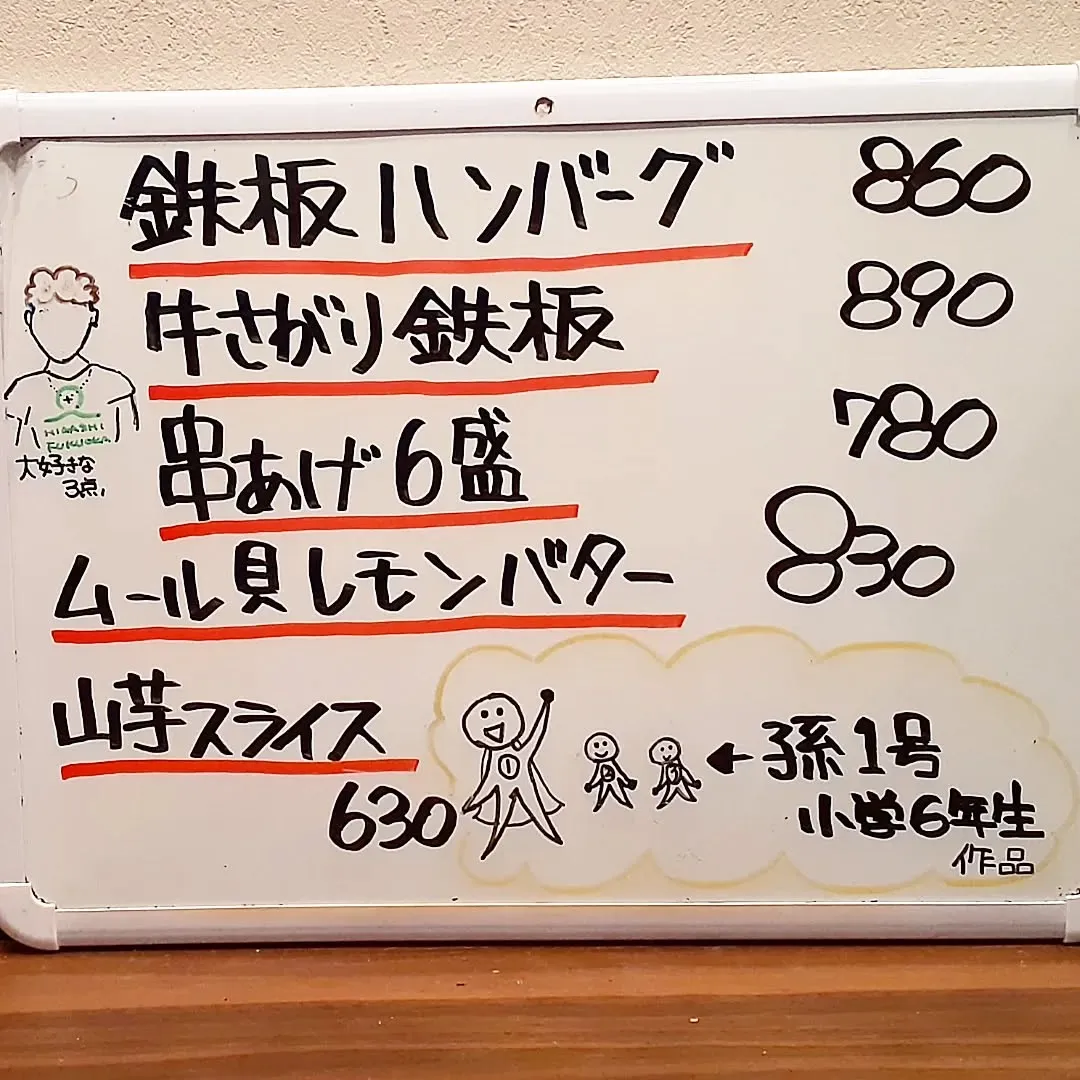 鉄板ハンバーグ 860
牛さがり鉄板 890
串あげ6盛 780
HIGASHI
FUKUOKA
大好きな
3点,
ムール貝レモンバター 830
山芋スライス
630
①
←孫1号
小学6年生
作品